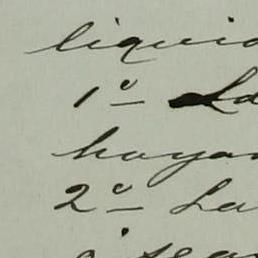 liquid
1º La
hayan
2º La
o sea